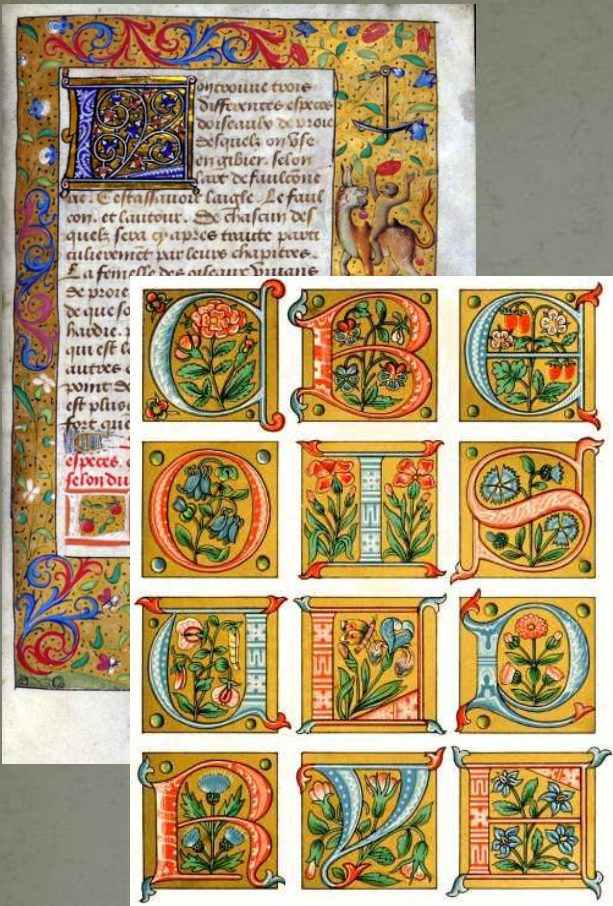 Lon trouue trois
differentes especes
doiseaulx de proie
desquelz on vse
en gibier. selon
lart de faulcone
rie. Cest assauoir laigle. Le faul
con. et lautour. De chascun des
quelz sera cy apres traite parti
culierement par leurs chapitres.
La femelle des oiseaux viuans
de proie
de que so
hardie. p
qui est le
autres
point de
est plus
fort que
especes.
selon du
B E
O I S
L P
R V F